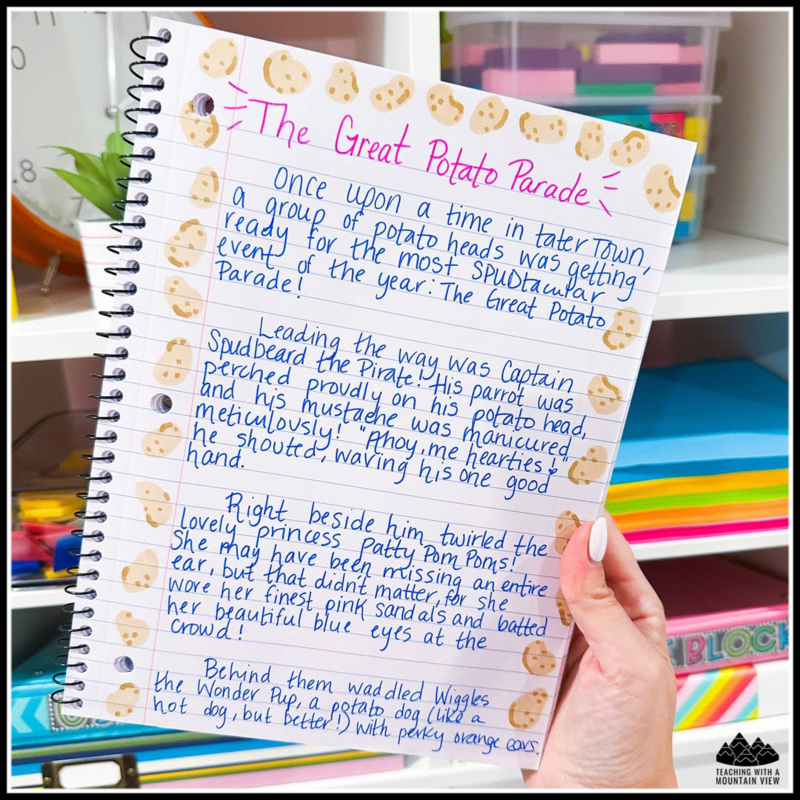 The Great Potato Parade
Once upon a time in tater Town,
a group of potato heads was getting
ready for the most SPUDtacular
event of the year: The Great Potato
Parade!
Leading the way was Captain
Spudbeard the Pirate! His parrot was
perched proudly on his potato head,
and his mustache was manicured
meticulously! "Ahoy, me hearties!"
he shouted, waving his one good
hand.
Right beside him twirled the
lovely princess Patty Pom Poms!
She may have been missing an entire
ear, but that didn't matter, for she
wore her finest pink sandals and batted
her beautiful blue eyes at the
crowd!
Behind them waddled Wiggles
the Wonder Pup, a potato dog (like a
hot dog, but better!) with perky orange ears.
BLOCK
TEACHING WITH A
MOUNTAIN VIEW